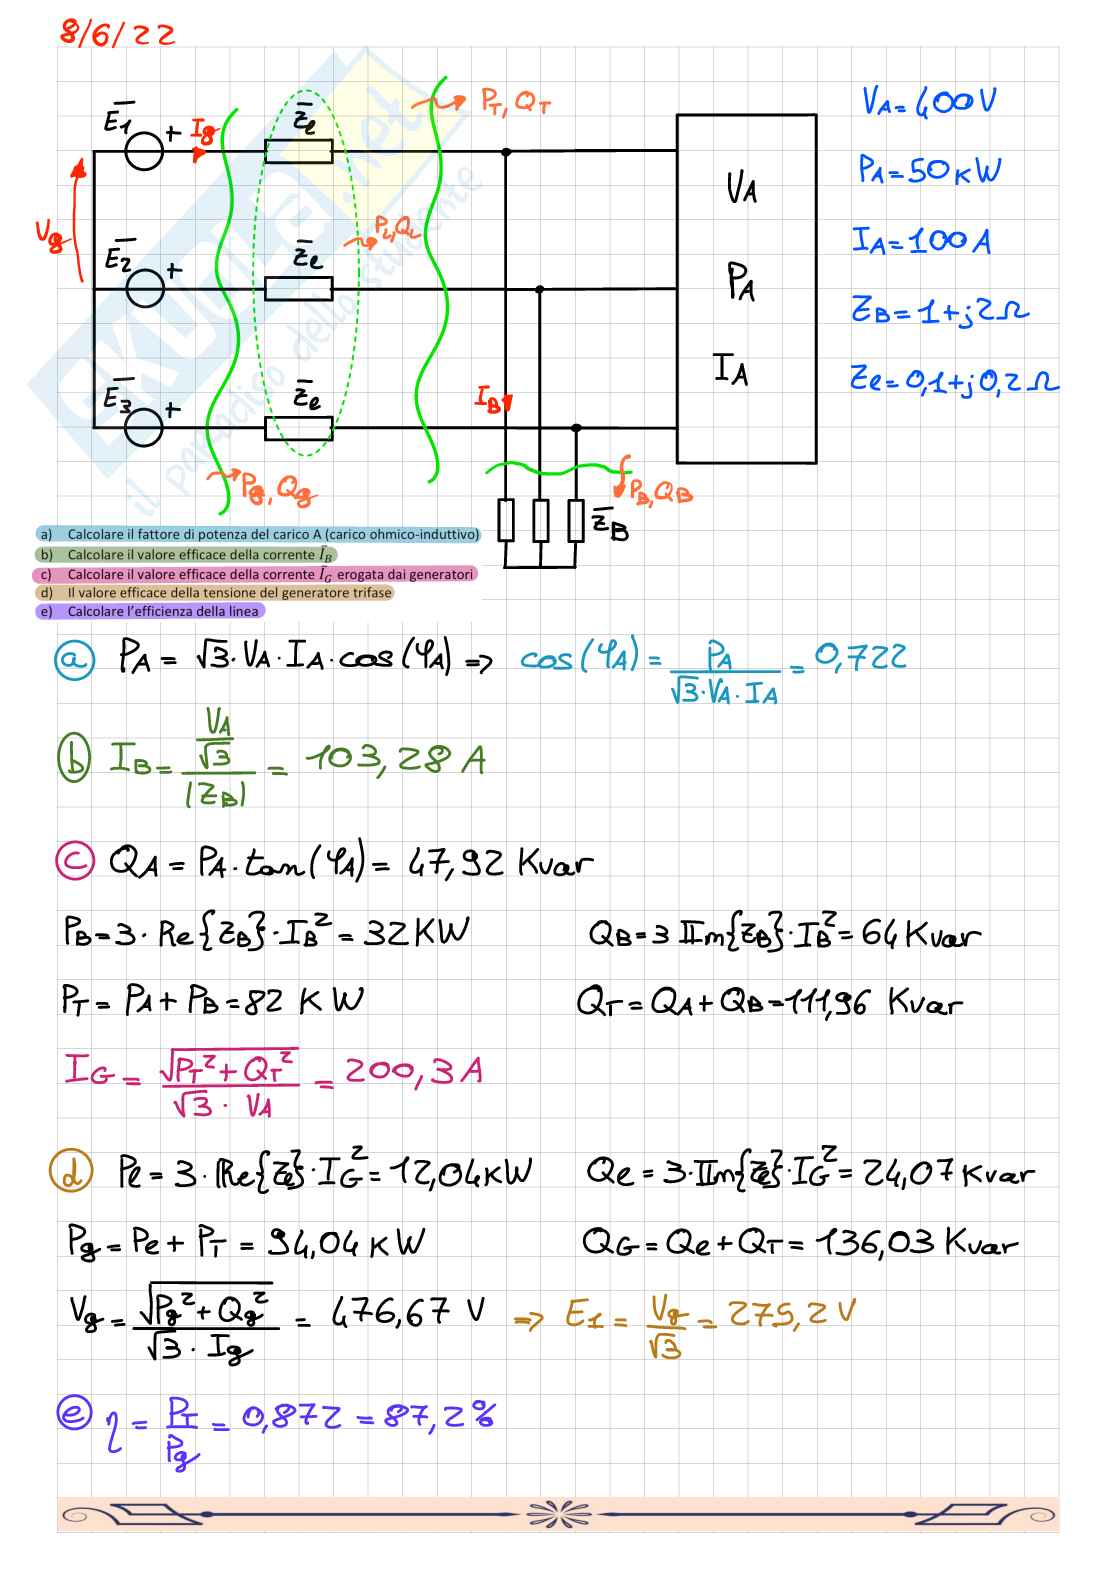 8/6/22
E̅1 + Ig Z̅e PT, QT VA = 400V
VA PA = 50 KW
Vg E̅2 + Z̅e PL, QL IA = 100 A
PA ZB = 1 + j2 Ω
E̅3 + Z̅e IB IA Ze = 0,1 + j0,2 Ω
Pg, Qg PB, QB
Z̅B
SKUOLA.net
il paradiso dello studente
a) Calcolare il fattore di potenza del carico A (carico ohmico-induttivo)
b) Calcolare il valore efficace della corrente Ī_B
c) Calcolare il valore efficace della corrente Ī_G erogata dai generatori
d) Il valore efficace della tensione del generatore trifase
e) Calcolare l'efficienza della linea
a PA = √3 · VA · IA · cos(φA) => cos(φA) = PA / (√3 · VA · IA) = 0,722
b IB = (VA/√3) / |ZB| = 103,28 A
c QA = PA · tan(φA) = 47,92 Kvar
PB = 3 · Re{Z̅B} · IB² = 32 KW QB = 3 Im{Z̅B} · IB² = 64 Kvar
PT = PA + PB = 82 KW QT = QA + QB = 111,96 Kvar
IG = √(PT² + QT²) / (√3 · VA) = 200,3 A
d Pe = 3 · Re{Z̅e} · IG² = 12,04 KW Qe = 3 · Im{Z̅e} · IG² = 24,07 Kvar
Pg = Pe + PT = 94,04 KW QG = Qe + QT = 136,03 Kvar
Vg = √(Pg² + Qg²) / (√3 · Ig) = 476,67 V => E1 = Vg / √3 = 275,2 V
e η = PT / Pg = 0,872 = 87,2 %